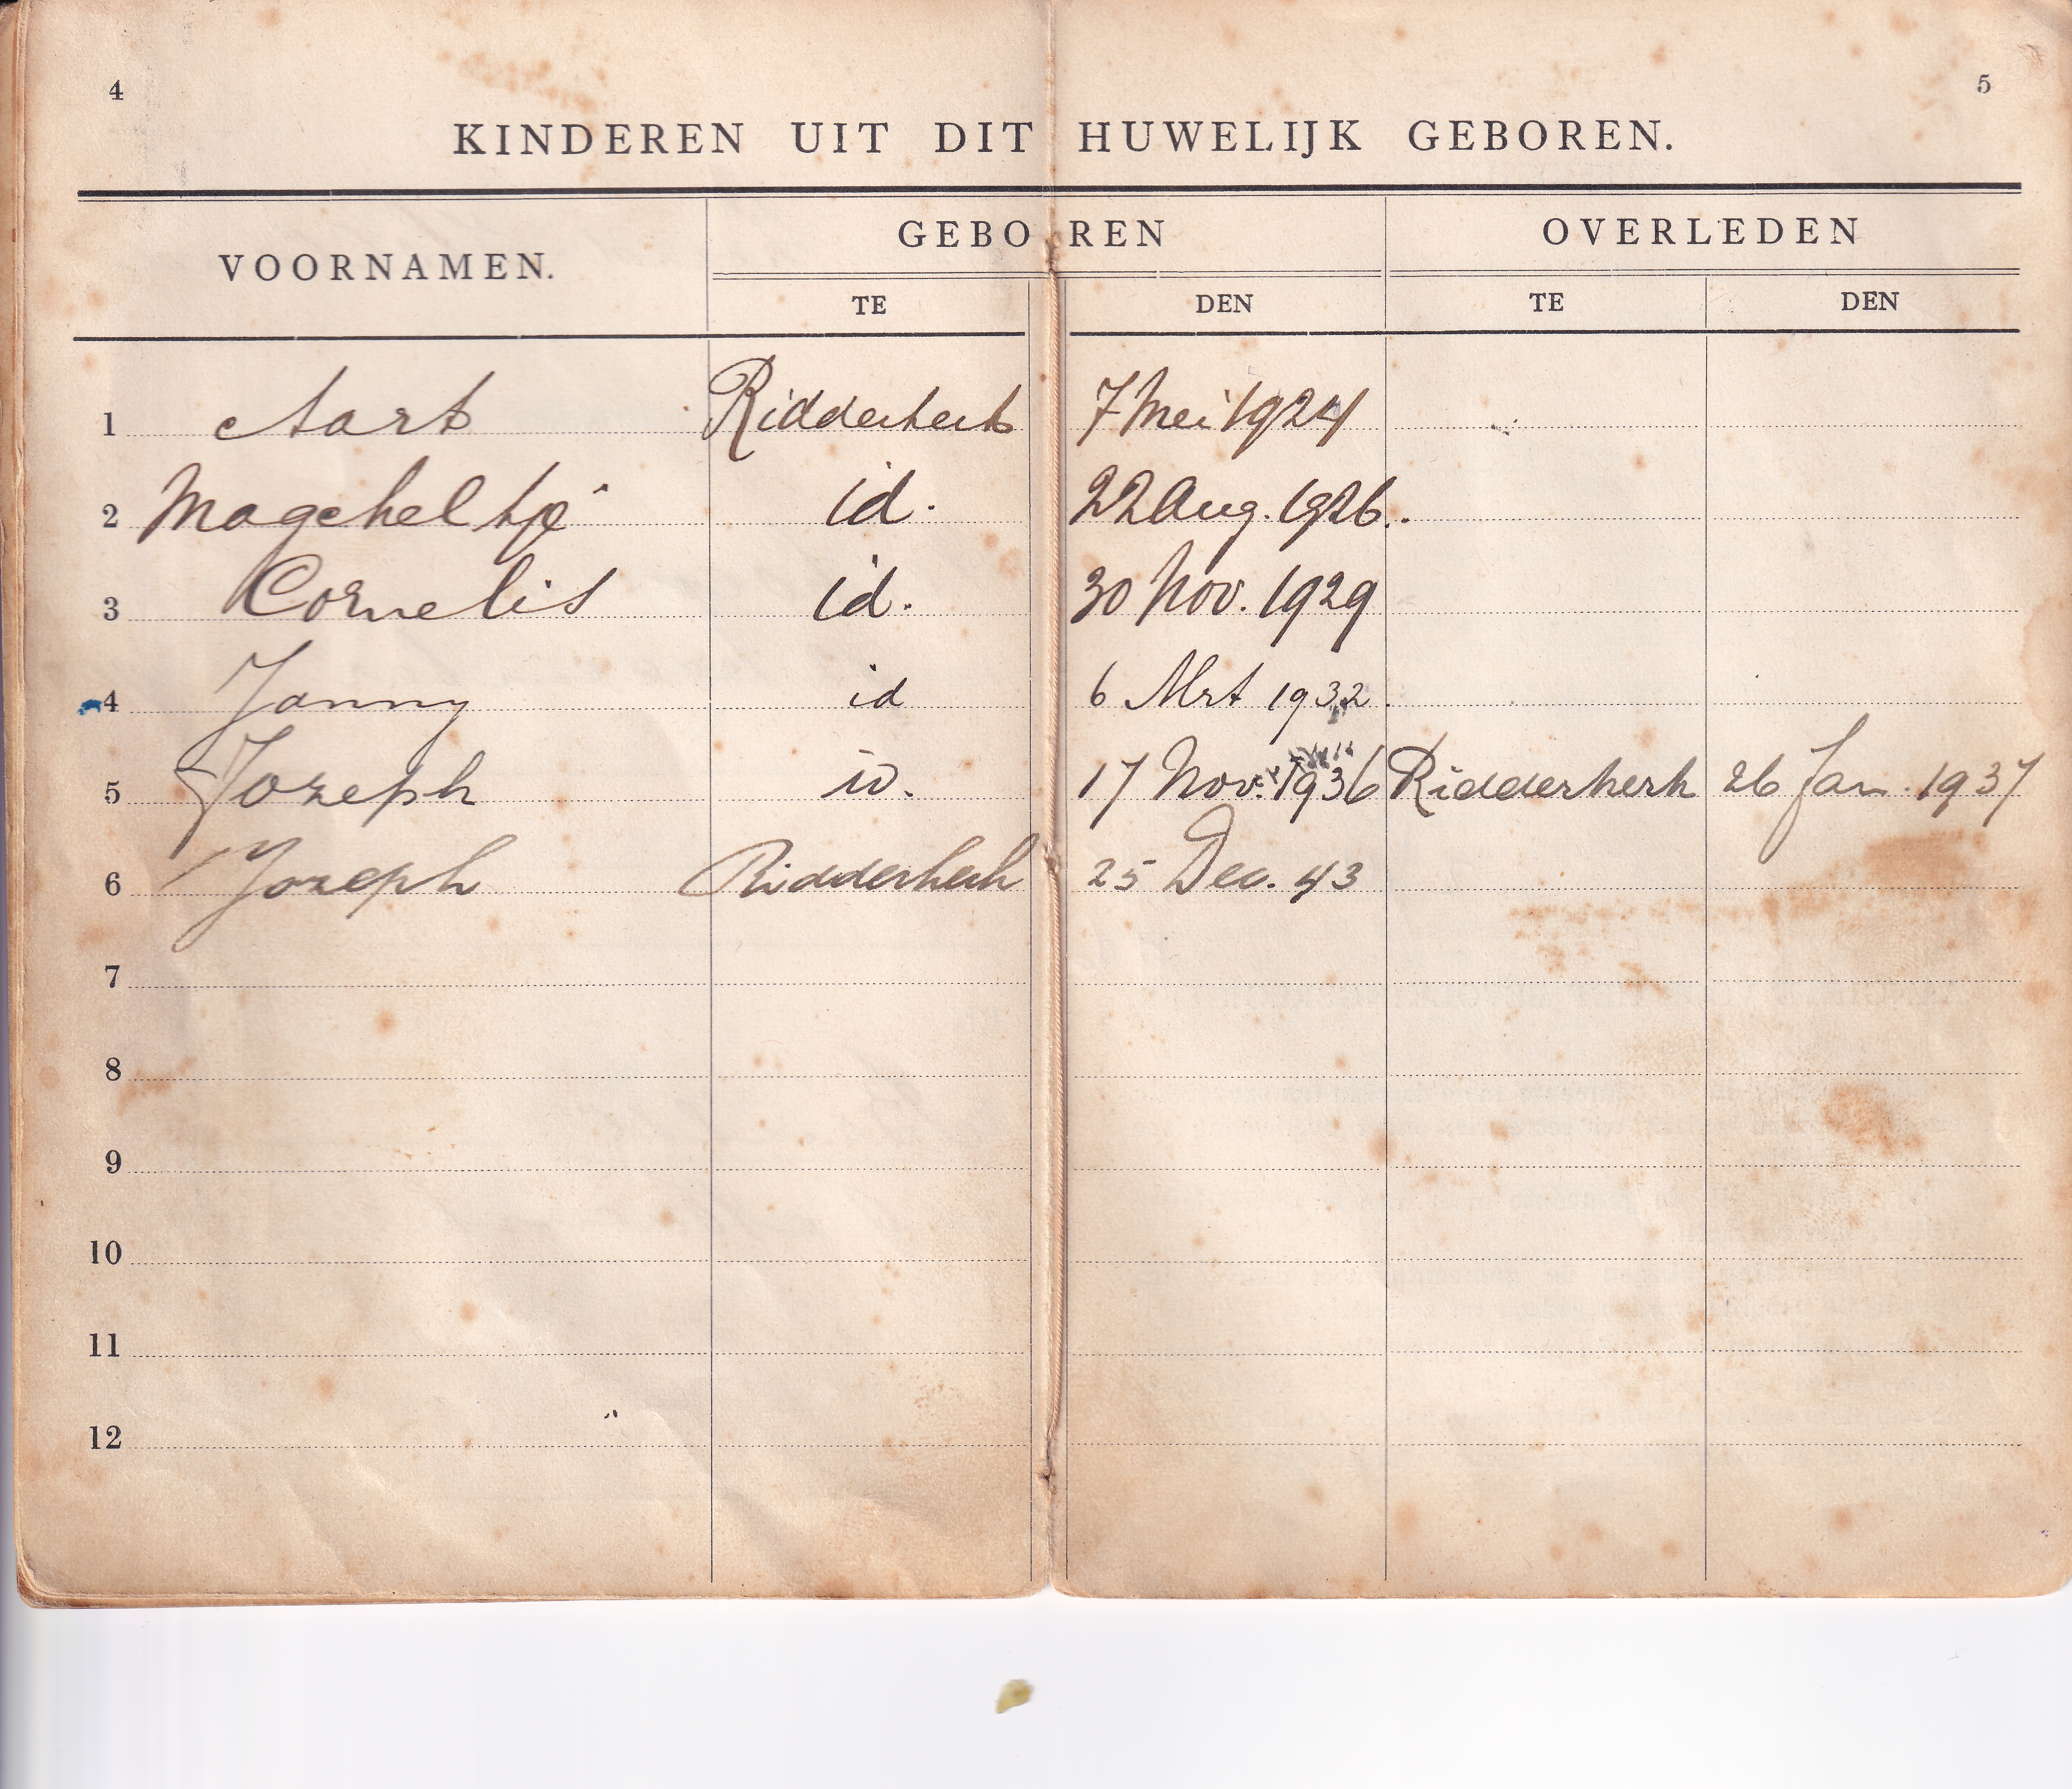 4 5
KINDEREN UIT DIT HUWELIJK GEBOREN.
VOORNAMEN. GEBOREN OVERLEDEN
TE DEN TE DEN
1 Aart Ridderkerk 7 Mei 1924
2 Magcheltje id. 22 Aug. 1926.
3 Cornelis id. 30 Nov. 1929
4 Janny id 6 Mrt 1932.
5 Jozeph id. 17 Nov. 1936 Ridderkerk 26 Jan. 1937
6 Jozeph Ridderkerk 25 Dec. 43
7
8
9
10
11
12